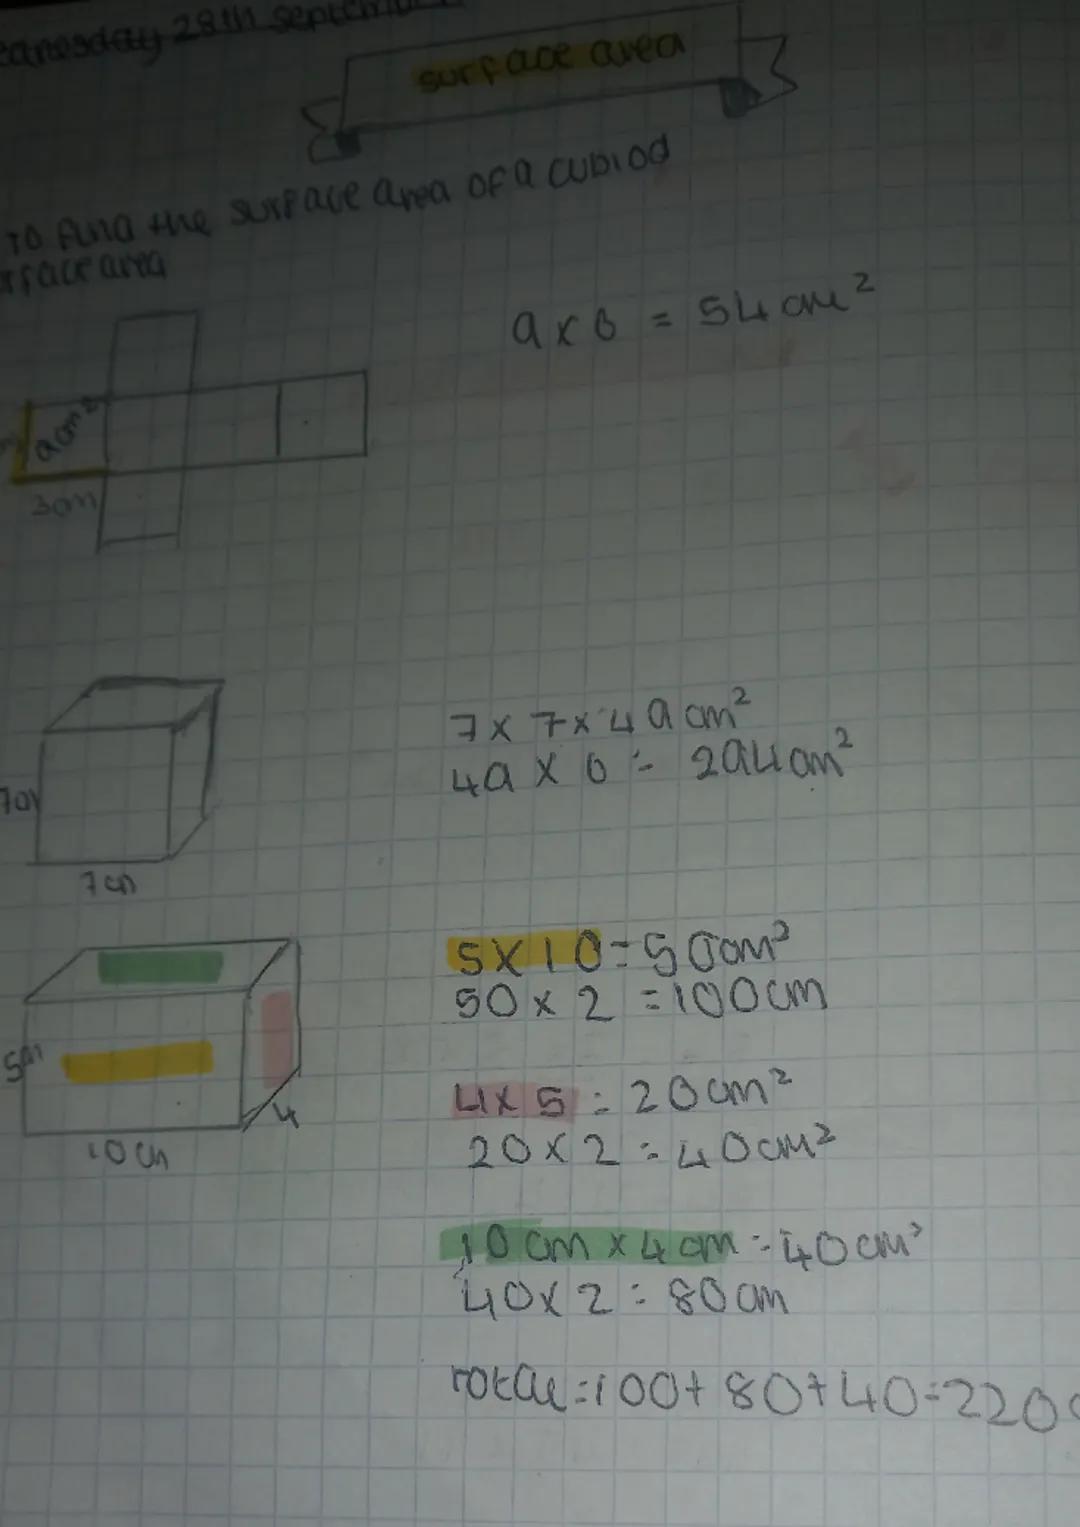 Wednesday 28th September
surface area
To find the surface area of a cubiod
surface area
9 x 6 = 54 cm²
9cm²
3cm
7 x 7 x 49 cm²
49 x 6 = 294 cm²
7cm
7cm
5 x 10 = 50cm²
50 x 2 = 100cm
5cm
4 x 5 = 20cm²
4
20 x 2 = 40cm²
10cm
10cm x 4cm = 40cm²
40 x 2 = 80cm
total = 100 + 80 + 40 = 220c